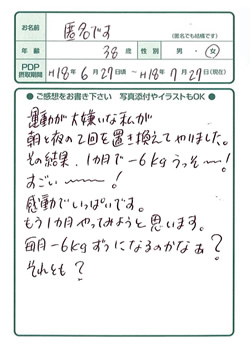 お名前 匿名です
(匿名でも結構です)
年齢 38歳 性別 男・女
PDP摂取期間 H18年6月27日頃 ～ H18年7月27日(現在)
●ご感想をお書き下さい 写真添付やイラストもOK●
運動が大嫌いな私が
朝と夜の2回を置き換えてやりました。
その結果、1カ月で-6kg うっそ～～!
すごい～～～!
感動でいっぱいです。
もう1カ月やってみようと思います。
毎月-6kgずつになるのかなぁ?
それとも?